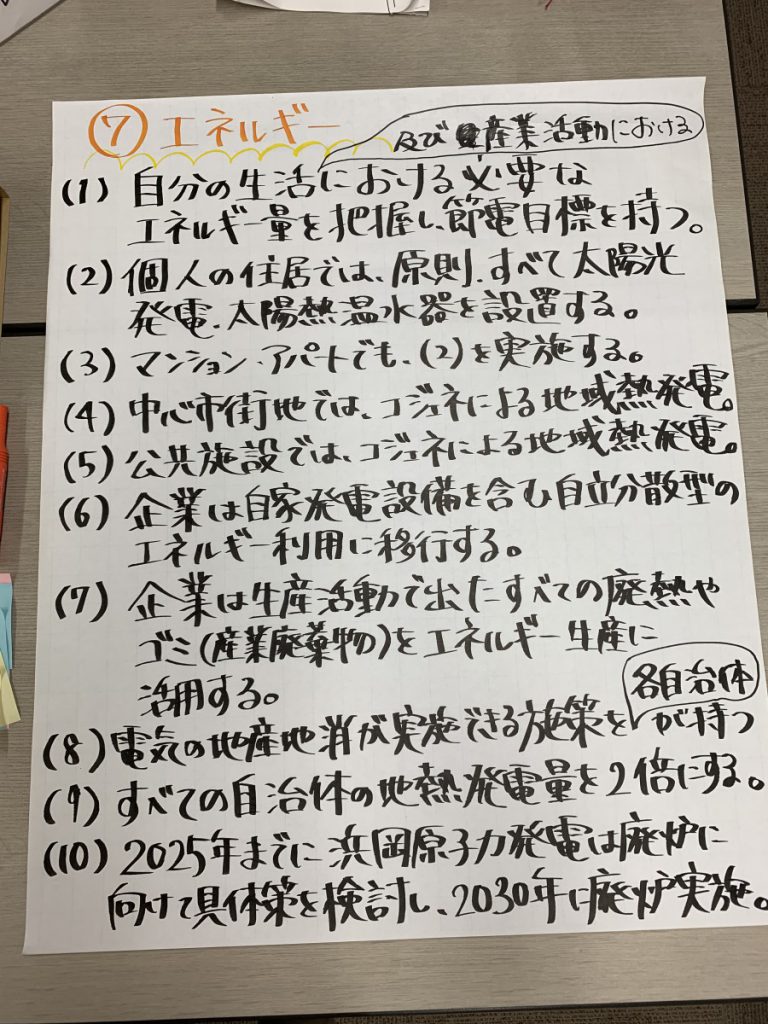 ⑦ エネルギー
及び産業活動における
(1) 自分の生活における必要な
エネルギー量を把握し、節電目標を持つ。
(2) 個人の住居では、原則、すべて太陽光
発電、太陽熱温水器を設置する。
(3) マンション、アパートでも、(2)を実施する。
(4) 中心市街地では、コジェネによる地域熱発電。
(5) 公共施設では、コジェネによる地域熱発電。
(6) 企業は自家発電設備を含む自立分散型の
エネルギー利用に移行する。
(7) 企業は生産活動で出たすべての廃熱や
ゴミ(産業廃棄物)をエネルギー生産に
活用する。
各自治体
(8) 電気の地産地消が実施できる施策をが持つ
(9) すべての自治体の地熱発電量を2倍にする。
(10) 2025年までに浜岡原子力発電は廃炉に
向けて具体策を検討し、2030年に廃炉実施。